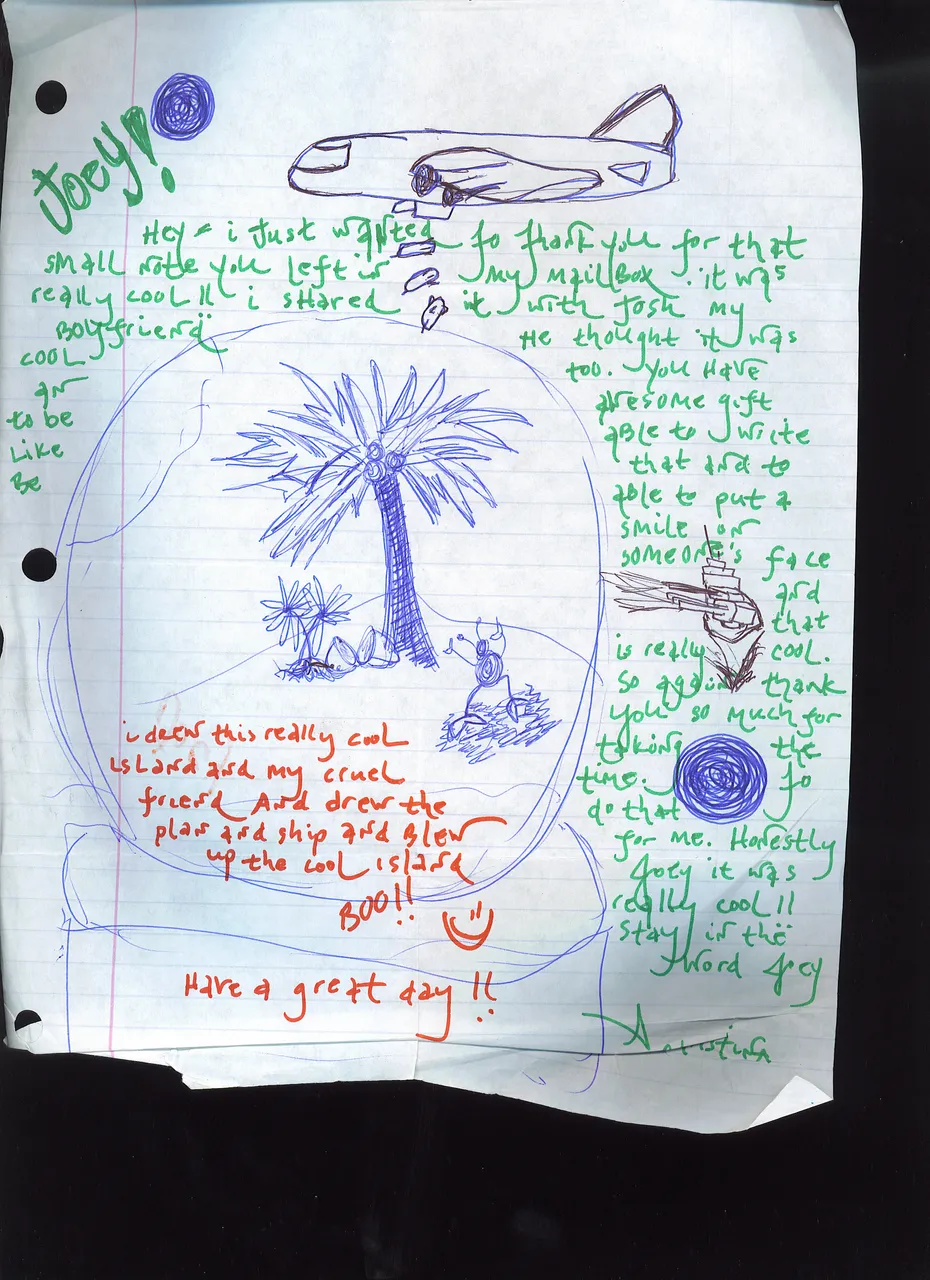 Joey!
Hey - i Just wanted to thank you for that
small note you left in my mailBox. it was
really cool!! i shared it with Josh my
Boyfriend He thought it was
cool too. you have
an awesome gift
to be able to write
Like that and to
Be able to put a
smile on
someone's face
and
that
is really cool.
So again thank
you so much for
taking the
time. to
do that
for me. Honestly
Joey it was
really cool!!
stay in the
word Joey
i drew this really cool
island and my cruel
friend And drew the
plan and ship and Blew
up the cool island
BOO!!
Have a great day!!